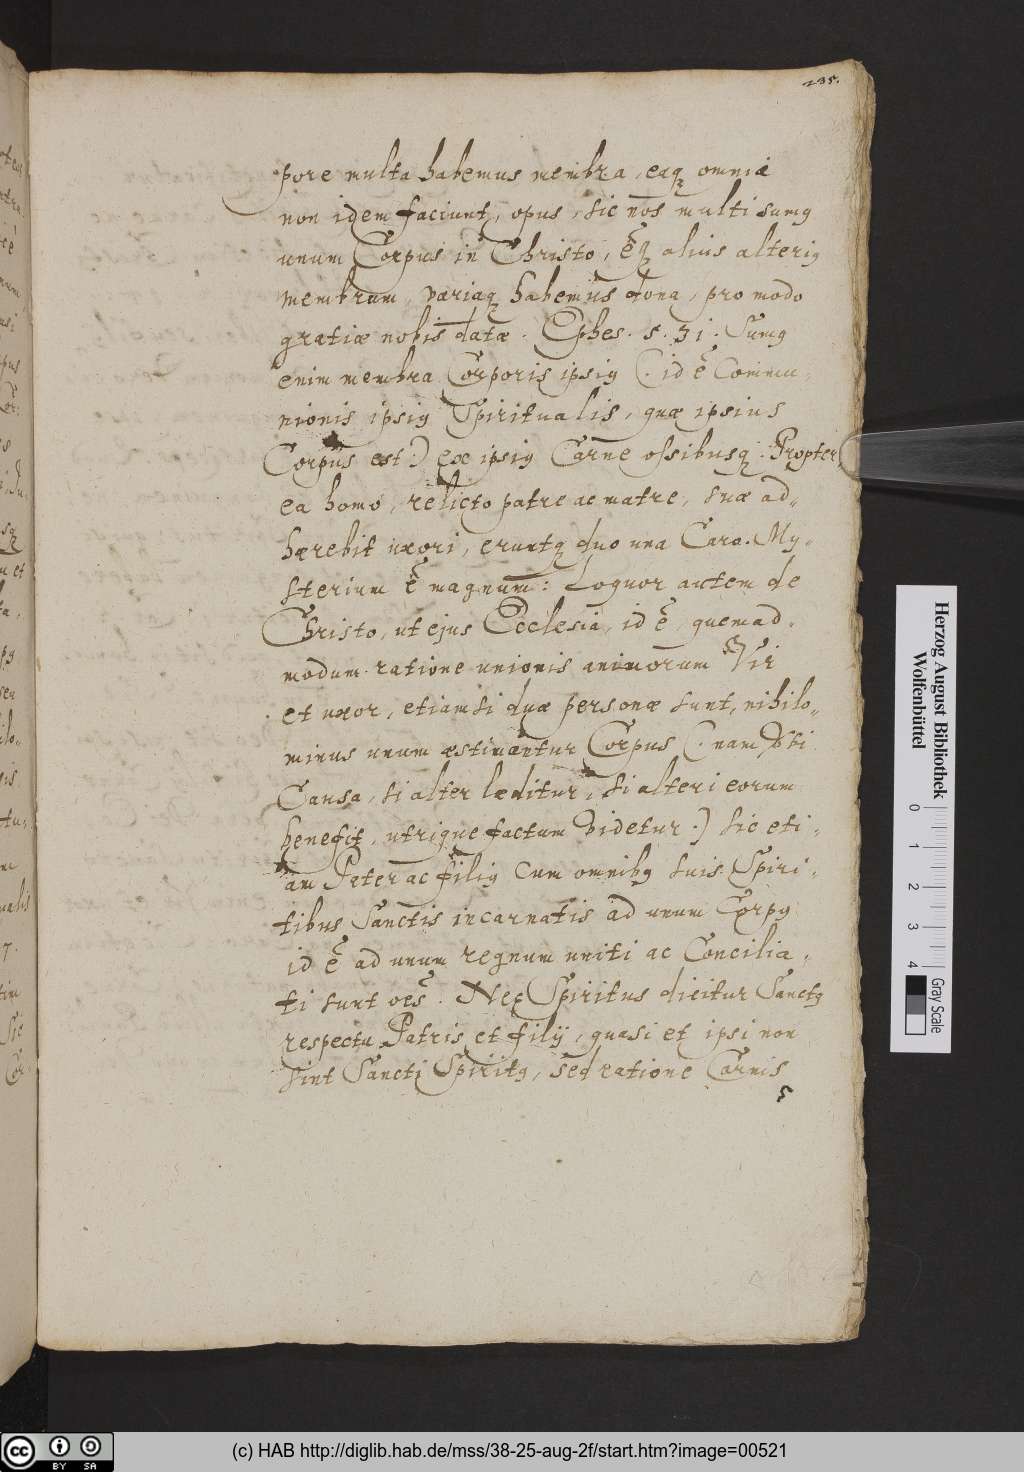 235.
pore multa habemus membra, eaq₃ omnia
non idem faciunt, opus, sic nos multi sumꝰ
unum Corpus in Christo, ēq₃ alius alteriꝰ
membrum, variaq₃ habemus dona, pro modo
gratiæ nobis datæ. Ephes. 5. 31. Sumꝰ
enim membra Corporis ipsiꝰ (. id ē Commu-
nionis ipsiꝰ Spiritualis, quæ ipsius
Corpus est :) ex ipsiꝰ Carne ossibusq₃: Propter
ea homo, relicto patre ac matre, suæ ad-
hærebit uxori, eruntq₃ duo una Caro. My-
sterium ē magnum: Loquor autem de
Christo, ut ejus Ecclesia, id ē, quemad-
modum ratione unionis animorum Vir
et uxor, etiamsi duæ personæ sunt, nihilo-
minus unum æstimantur Corpus (. nam Vbi
Causa, si alter læditur, si alteri eorum
benefit, utrique factum videtur .) sic eti-
am Pater ac filiꝰ Cum omnibꝰ suis Spiri-
tibus Sanctis incarnatis ad unum Corpꝰ
id ē ad unum regnum uniti ac Concilia-
ti sunt oēs. Neq₃ Spiritus dicitur Sanctꝰ
respectu Patris et filij, quasi et ipsi non
sint Sancti Spiritꝰ, sed ratione Carnis
Herzog August Bibliothek
Wolfenbüttel
0 1 2 3 4
Gray Scale
cc BY SA
(c) HAB http://diglib.hab.de/mss/38-25-aug-2f/start.htm?image=00521